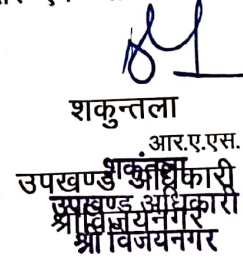 शकुन्तला
आर.ए.एस.
शकुंतला
उपखण्ड अधिकारी
उपखण्ड अधिकारी
श्रीविजयनगर
श्री विजयनगर